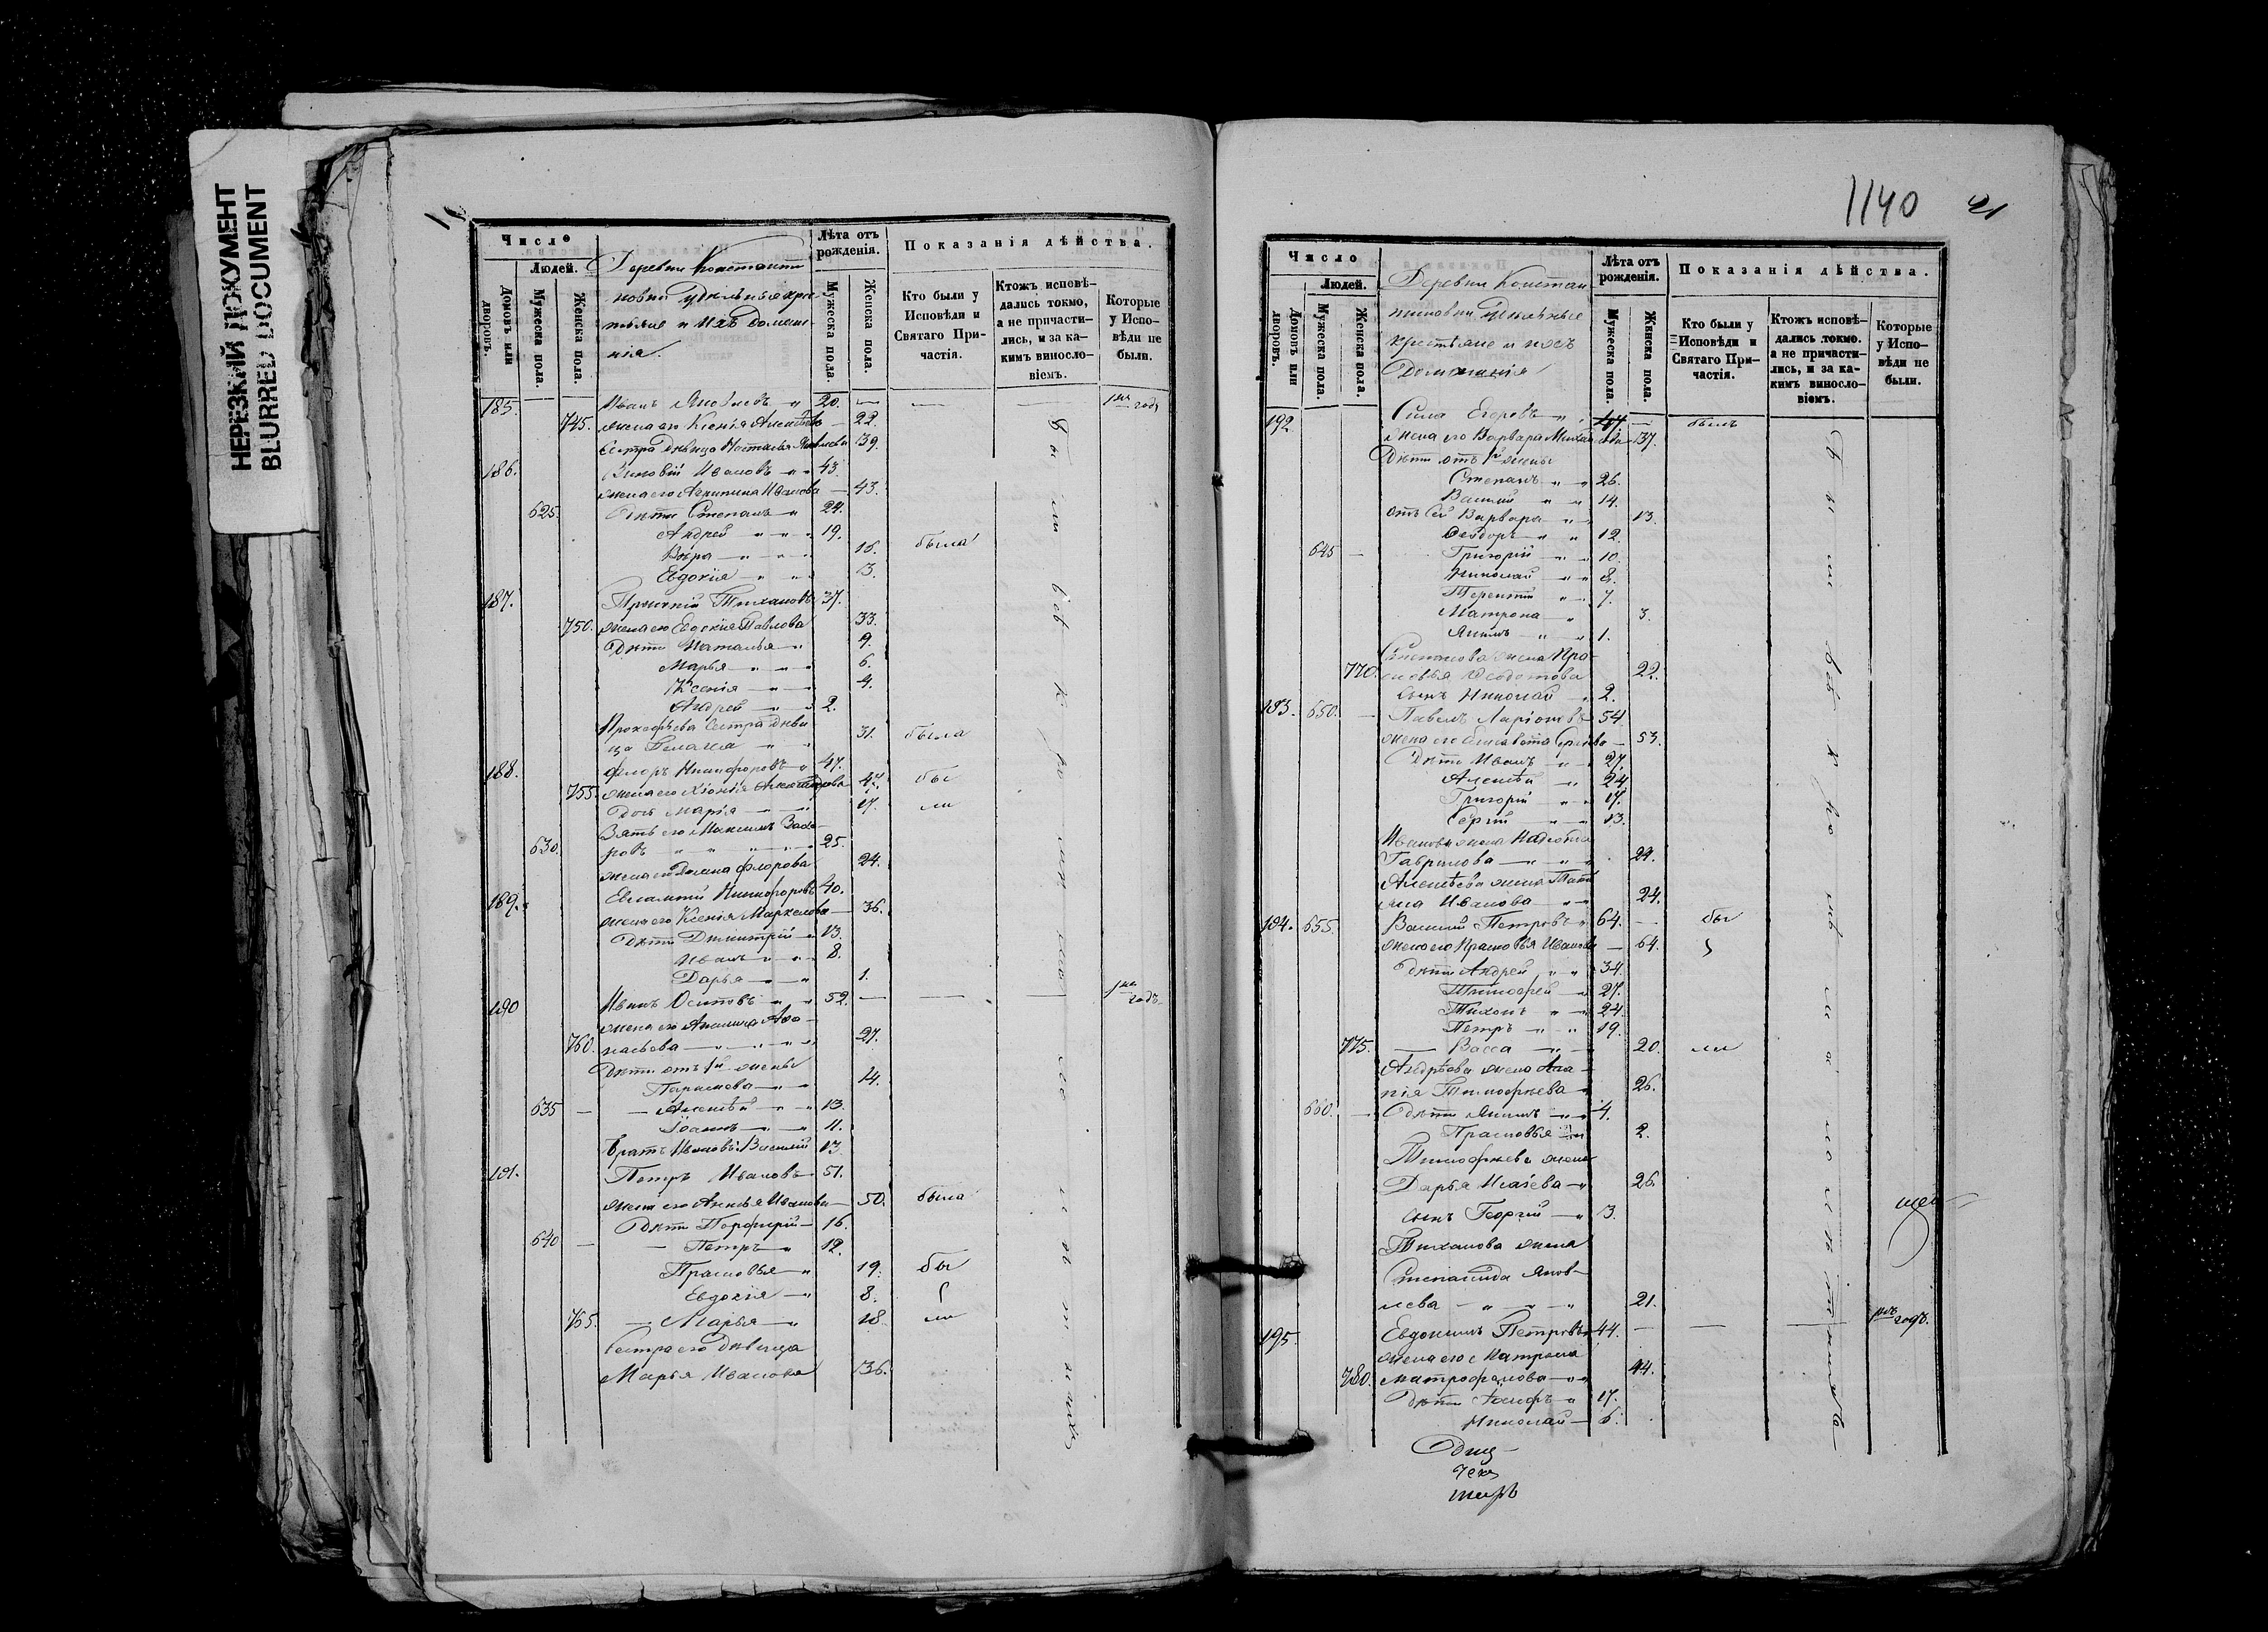 НЕРЕЗКИЙ ДОКУМЕНТ
BLURRED DOCUMENT
Число
Людей.
Домовъ или дворовъ.
Мужеска пола.
Женска пола.
Деревни Константи
новки Удѣльные кре
стьяне и ихъ домаш
нія.
Лѣта отъ рожденія.
Мужеска пола.
Женска пола.
Показанія дѣйства.
Кто были у Исповѣди и Святаго Причастія.
Ктожъ исповѣдались токмо, а не причастились, и за какимъ винословіемъ.
Которые у Исповѣди не были.
185. Иванъ Яковлевъ 20.
745. жена его Ксенія 22.
сестра дѣвица Наталья Яковлева 39.
186. Зиновій Ивановъ 43.
жена его Агрипина Иванова 43.
625. Дѣти Степанъ 24.
Андрей 19.
Вѣра 16. была
Евдокія 13.
187. Тихановъ 37.
750. жена его Евдокія Павлова 33.
Дѣти Наталья 9.
Марья 6.
Ксенія 4.
Андрей 2.
Прокофьева сестра дѣви
ца Пелагея 31. была
188. Флоръ Никифоровъ 47.
755. жена его Хіонія 47. бы
дочь Марія 17. ли
Зять его Максимъ Заха
630. ровъ 25.
жена его Флорова 24.
189. Евлампій Никифоровъ 40.
жена его Ксенія Маркелова 36.
Дѣти Димитрій 13.
Иванъ 8.
Дарья 1.
190 Иванъ Осиповъ 52.
жена его Акилина Афа
760. насьева 27.
Дѣти отъ 1й жены
Параскева 14.
635 Алексѣй 13.
Іоаннъ 11.
братъ Ивановъ Василій 13
191. Петръ Ивановъ 51.
жена его Анисья Иванова 50. была
Дѣти Порфирій 16.
640 Петръ 12.
Прасковья 19. бы
Евдокія 8.
765. Марья 18. ли
сестра его дѣвица
Марья Иванова 36.
1140
Число
Людей.
Домовъ или дворовъ.
Мужеска пола.
Женска пола.
Деревни Констан
тиновки Удѣльные
крестьяне и ихъ
Домашнія
Лѣта отъ рожденія.
Мужеска пола.
Женска пола.
Показанія дѣйства.
Кто были у Исповѣди и Святаго Причастія.
Ктожъ исповѣдались токмо. а не причастились, и за какимъ винословіемъ.
Которые у Исповѣди не были.
192 Сила Егоровъ 47. былъ
жена его Варвара 37.
Дѣти отъ 1й жены
Степанъ 26.
Василій 14.
отъ сей Варвара 13.
Ѳеодоръ 12
645 Григорій 10.
Николай 8.
Терентій 7.
Матрона 3.
Якимъ 1.
Степанова жена Пра
770. сковья Ѳеодотова 22.
сынъ Николай 2.
193. 650. Павелъ Ларіоновъ 54
жена его Елисавета 53.
Дѣти Иванъ 27.
Алексѣй 24
Григорій 17.
Сергій 13.
Иванова жена
Гаврилова 29.
Алексѣева жена Таті
яна Иванова 24.
194. 655. Василій Петровъ 64. бы
жена его Прасковья Иванова 64.
Дѣти Андрей 34.
Тимофей 27.
Тихонъ 24
Петръ 19.
775. Васса 20. ли
Андрѣева жена Ага
пія Тимофеева 26.
660. Дѣти Якимъ 4.
Прасковья 2.
Тимофеева жена
Дарья Исаева 26
сынъ Георгій 3.
Тиханова жена
Степанида Яков
лева 21.
195. Евдокимъ Петровъ 44.
жена его Матрона
780. Митрофанова 44.
Дѣти 17.
Николай 6.